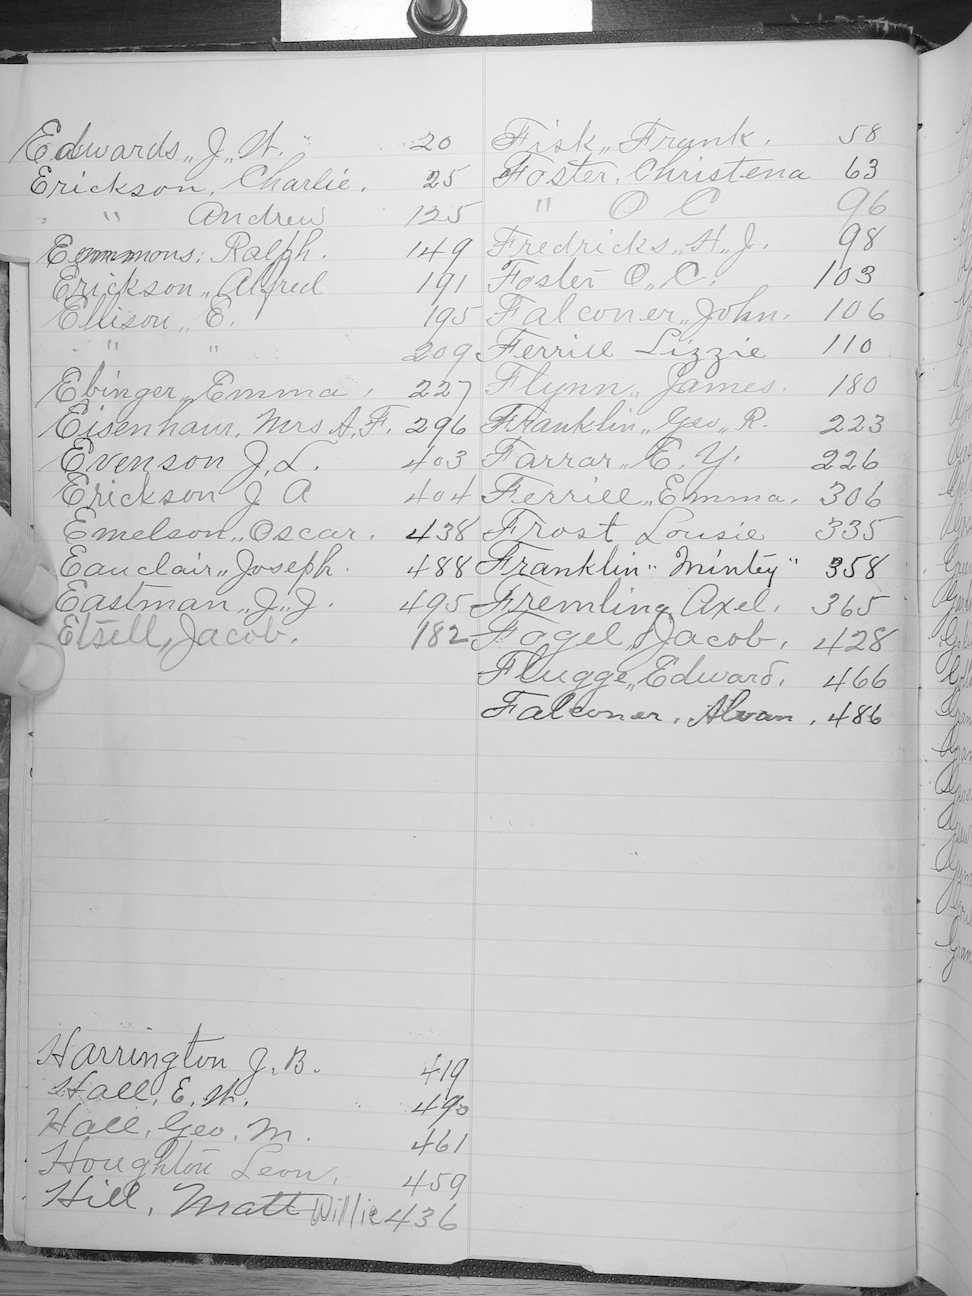 Edwards, J. W. 20
Erickson, Charlie. 25
" Andrew 125
Emmons, Ralph. 149
Erickson, Alfred 191
Ellison, E. 195
" " 209
Ebinger, Emma, 227
Eisenhaur, Mrs A. F. 296
Evenson J. L. 403
Erickson J A 404
Emelson, Oscar. 438
Eauclair, Joseph. 488
Eastman, J. J. 495
Etsell, Jacob. 182
Harrington J. B. 419
Hall, E. W. 490
Hall, Geo. M. 461
Houghton Leon, 459
Hill, Matt Willie 436
Fisk, Frank. 58
Foster, Christena 63
" O C 96
Fredricks, H. J. 98
Foster O. C. 103
Falconer, John. 106
Ferrill Lizzie 110
Flynn, James. 180
Franklin, Geo, R. 223
Farrar, E. Y. 226
Ferrill, Emma, 306
Frost Lousie 335
Franklin "Mintey" 358
Fremling Axel, 365
Fogel, Jacob, 428
Flugge, Edward, 466
Falconer, Alvan, 486